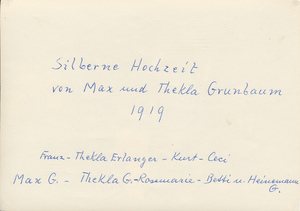 Silberne Hochzeit
von Max und Thekla Grunbaum
1919
Franz - Thekla Erlanger - Kurt - Ceci
Max G. - Thekla G. - Rosemarie - Betti u. Heinemann
G.